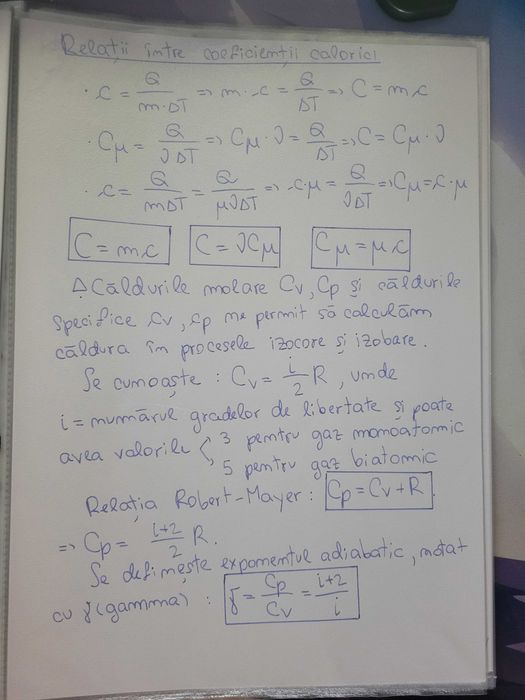 Relații între coeficienții calorici
· c = Q/(m·ΔT) => m·c = Q/ΔT => C = mc
· Cμ = Q/(νΔT) => Cμ·ν = Q/ΔT => C = Cμ·ν
· c = Q/(mΔT) = Q/(μνΔT) => c·μ = Q/(νΔT) => Cμ = c·μ
C = mc C = νCμ Cμ = μc
Δ Căldurile molare Cv, Cp și căldurile
specifice cv, cp ne permit să calculăm
căldura în procesele izocore și izobare.
Se cunoaște : Cv = i/2 R, unde
i = numărul gradelor de libertate și poate
avea valorile < 3 pentru gaz monoatomic
5 pentru gaz biatomic
Relația Robert-Mayer : Cp = Cv + R.
=> Cp = (i+2)/2 R.
Se definește exponentul adiabatic, notat
cu γ (gamma) : γ = Cp/Cv = (i+2)/i